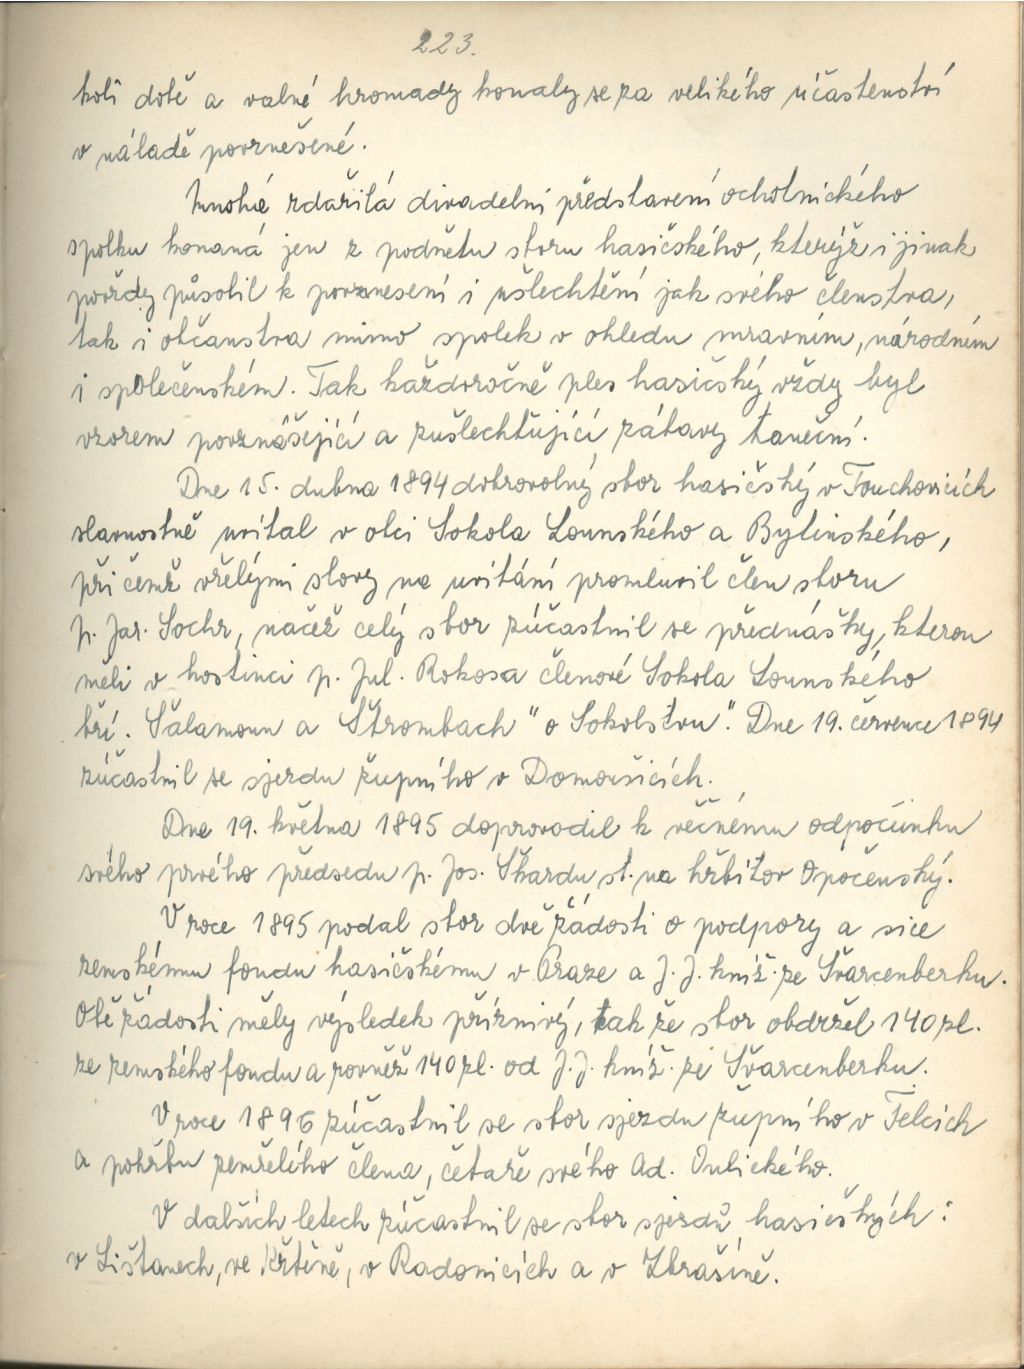 223.
koli době a valné hromady konaly se za velikého účastenství
v náladě povznešené.
Mnohá zdařilá divadelní představení ochotnického
spolku konaná jen z podnětu sboru hasičského, kterýž i jinak
pořády působil k povznesení i ušlechtění jak svého členstva,
tak i občanstva mimo spolek v ohledu mravním, národním
i společenském. Tak každoročně ples hasičský vždy byl
vzorem povznášející a zušlechťující zábavy taneční.
Dne 15. dubna 1894 dobrovolný sbor hasičský v Touchovicích
slavnostně uvítal v obci Sokola Lounského a Bylinského,
při čemž vřelými slovy na uvítání promluvil člen sboru
p. Jar. Sochr, načež celý sbor zúčastnil se přednášky, kterou
měli v hostinci p. Jul. Rokosa členové Sokola Lounského
bří. Šalamoun a Štrombach "o Sokolstvu". Dne 19. července 1894
zúčastnil se sjezdu župního v Domoušicích.
Dne 19. května 1895 doprovodil k věčnému odpočinku
svého prvého předsedu p. Jos. Škardu st. na hřbitov Opočenský.
V roce 1895 podal sbor dvě žádosti o podpory a sice
zemskému fondu hasičskému v Praze a J. J. kníž. ze Švarcenberku.
Obě žádosti měly výsledek příznivý, tak že sbor obdržel 140 zl.
ze zemského fondu a rovněž 140 zl. od J. J. kníž. ze Švarcenberku.
V roce 1896 zúčastnil se sbor sjezdu župního v Telcích
a pohřbu zemřelého člena, četaře svého Ad. Oulického.
V dalších letech zúčastnil se sbor sjezdů hasičských:
v Lišťanech, ve Křtěně, v Radonicích a v Zbrašíně.